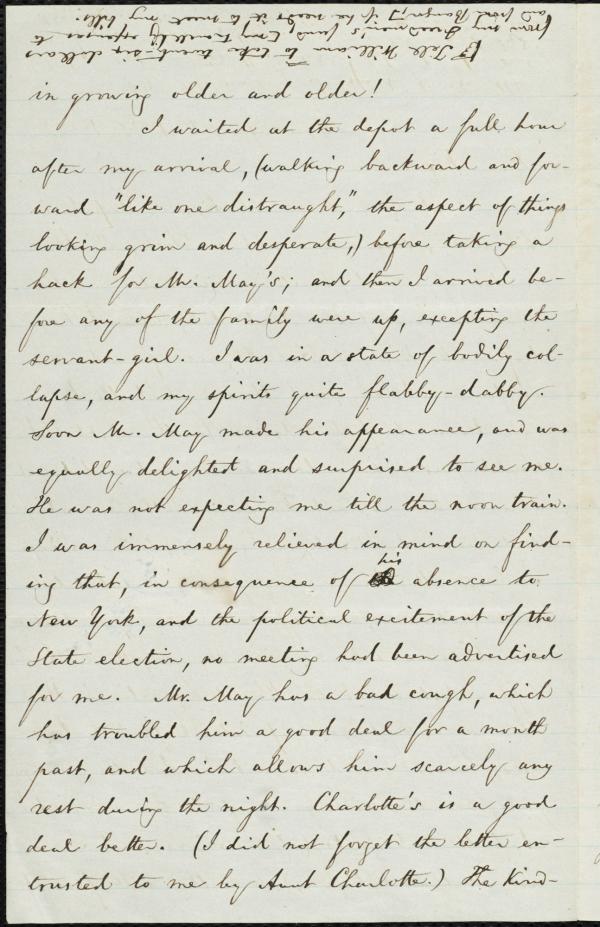 ☞ Tell William to take twenty-six dollars
from my Freedman's fund, (my travelling expenses to
and from Bangor,) if he needs it to meet my bills.
in growing older and older!
I waited at the depot a full hour
after my arrival, (walking backward and for-
ward "like one distraught," the aspect of things
looking grim and desperate,) before taking a
hack for Mr. May's; and then I arrived be-
fore any of the family were up, excepting the
servant-girl. I was in a state of bodily col-
lapse, and my spirits quite flabby-dabby.
Soon Mr. May made his appearance, and was
equally delighted and surprised to see me.
He was not expecting me till the noon train.
I was immensely relieved in mind on find-
ing that, in consequence of his absence to
New York, and the political excitement of the
State election, no meeting had been advertised
for me. Mr. May has a bad cough, which
has troubled him a good deal for a month
past, and which allows him scarcely any
rest during the night. Charlotte's is a good
deal better. (I did not forget the letter en-
trusted to me by Aunt Charlotte.) The kind-